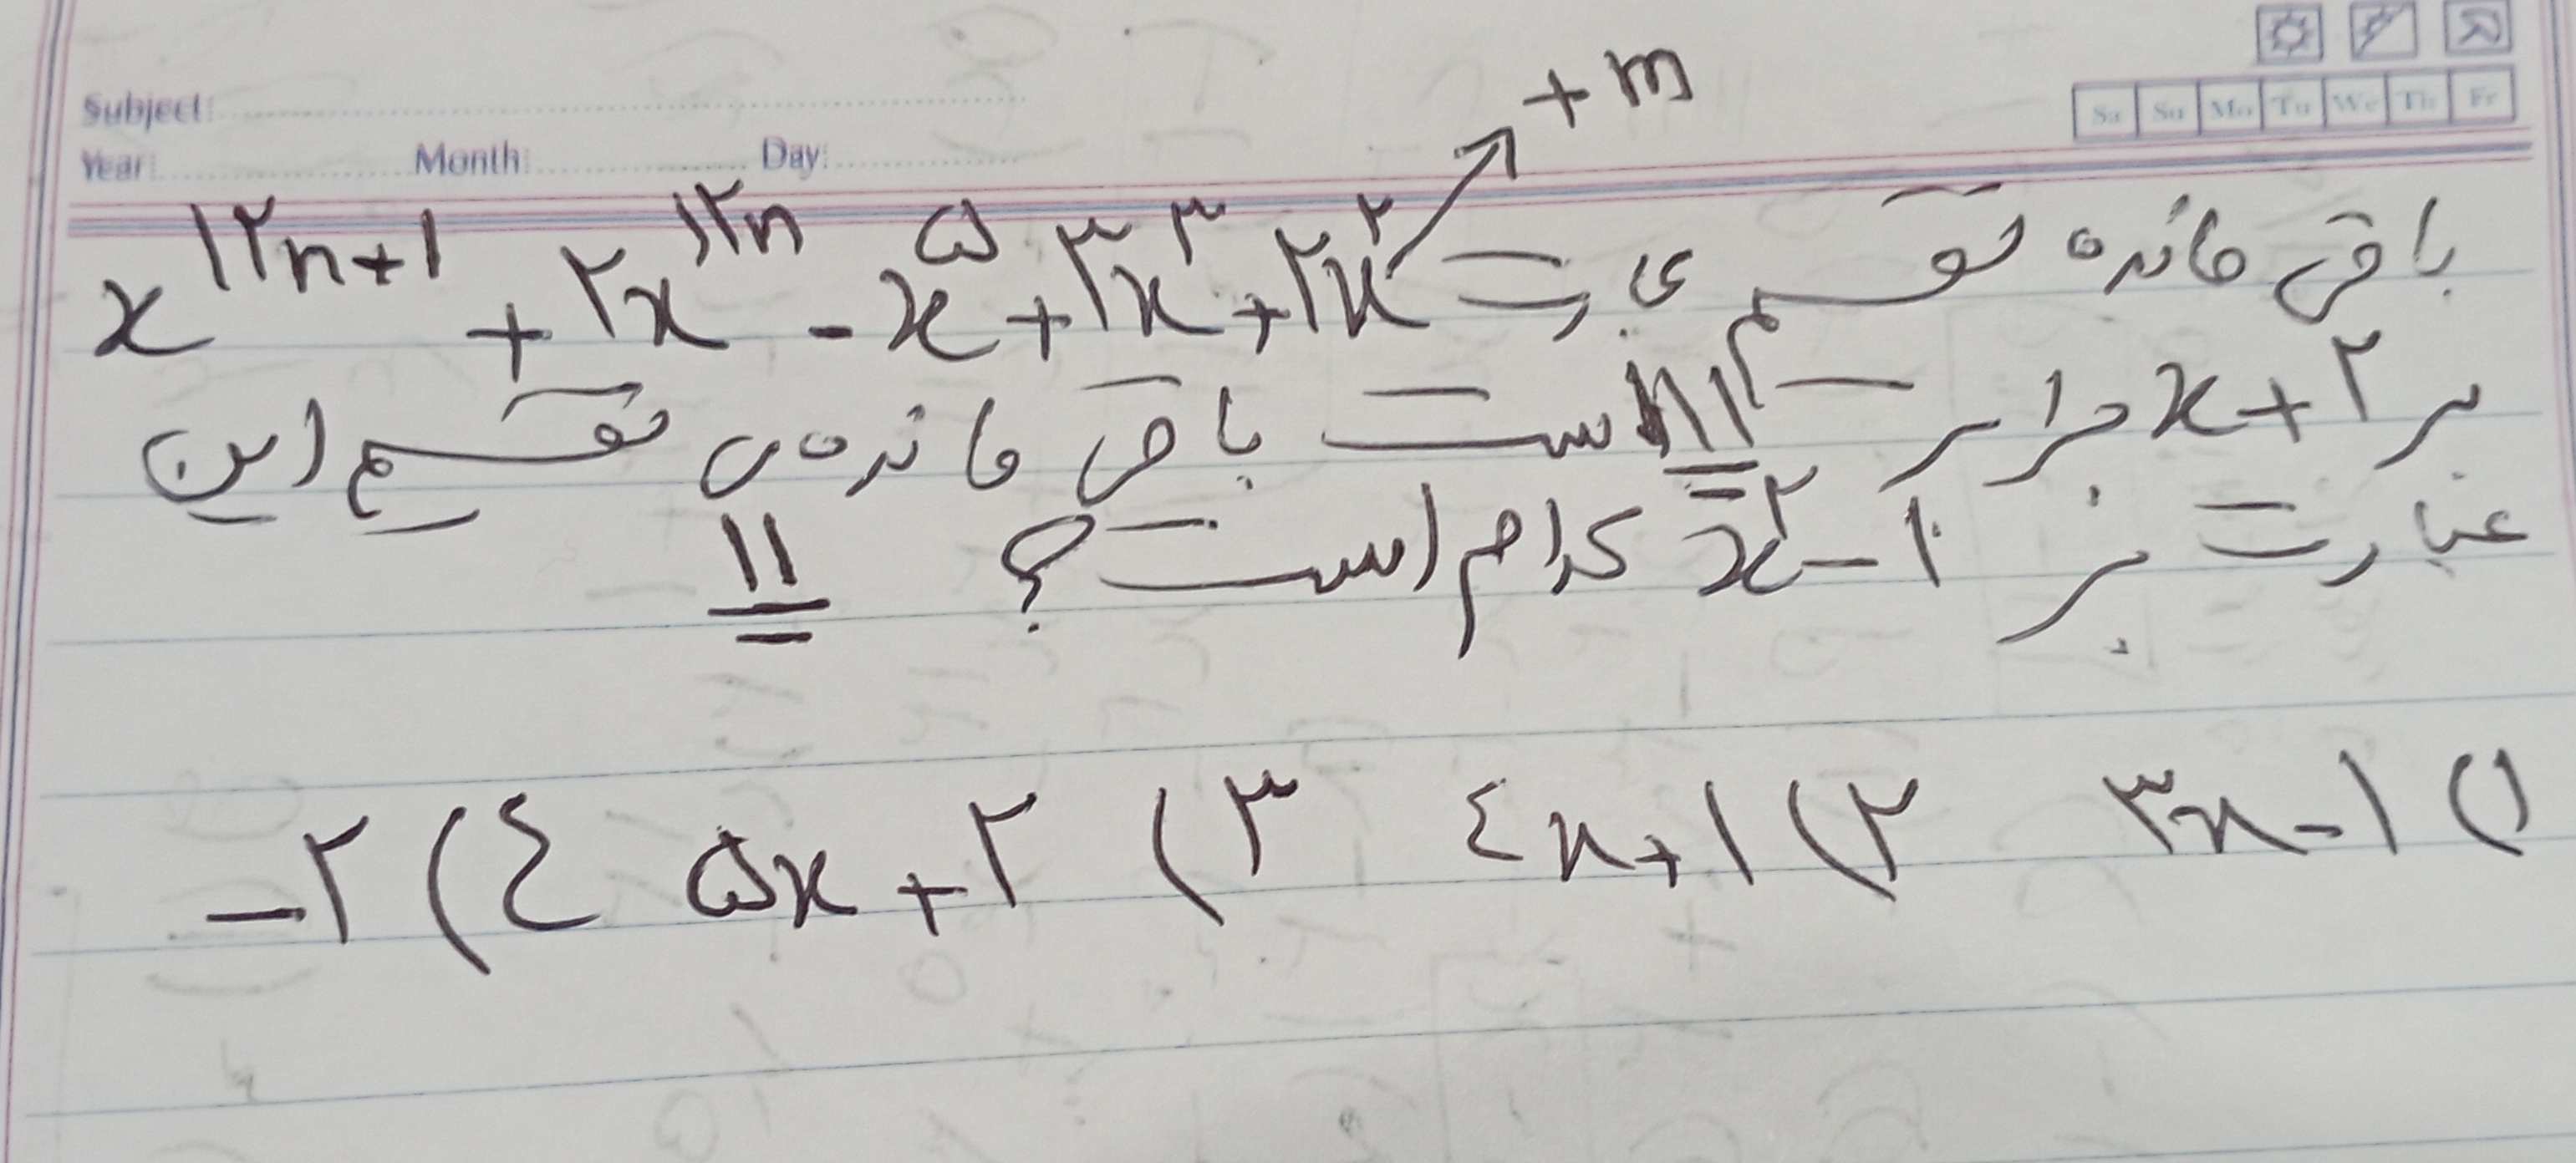 Subject:
Sa Su Mo Tu We Th Fr
Year: Month: Day:
+m
باقی مانده تقسیم عبارت x^۱۲n+۱ + ۲x^۱۲n - x^۵ + ۳x^۳ + ۲x^۲
بر x+۲ برابر ۱۱ است باقی مانده‌ی تقسیم این
عبارت بر x^۲-۱ کدام است؟ ۱۱
۱) ۳x-۱ ۲) ٤x+۱ ۳) ۵x+۲ ٤) -۲